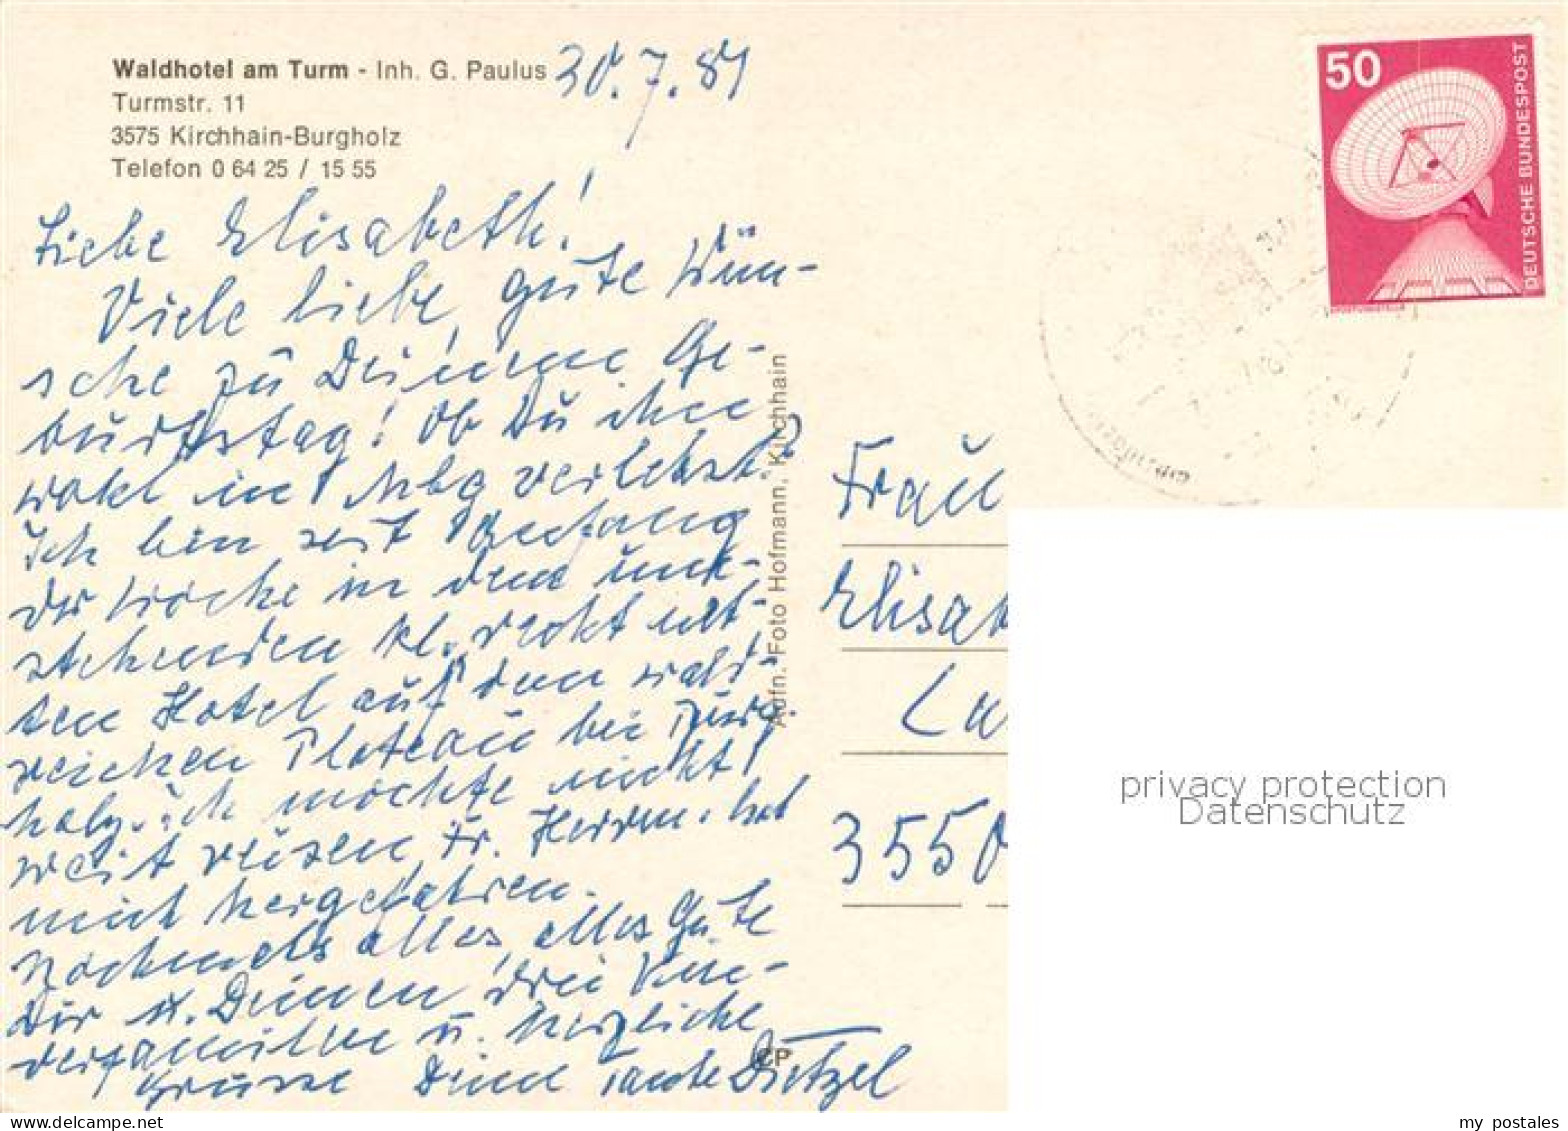 Waldhotel am Turm - Inh. G. Paulus
Turmstr. 11
3575 Kirchhain-Burgholz
Telefon 0 64 25 / 15 55
30.7.81
Liebe Elisabeth!
Viele liebe, gute Wün-
sche zu Deinem Ge-
burtstag! Ob Du ihn
wohl in Mbg verlebst?
Ich bin seit Anfang
der Woche in dem
stehenden kl. recht net-
ten Hotel auf dem wald-
reichen Plateau bei Burg-
holz. Ich möchte nicht
weit reisen, Fr. Herrm. hat
mich hergefahren.
Nochmals alles, alles Gute
Dir u. Deinen drei
u. herzliche
Grüsse Deine Tante Dietzel
Aufn. Foto Hofmann, Kirchhain
CP
50
DEUTSCHE BUNDESPOST
Frau
Elisab
La
3550
privacy protection
Datenschutz
my postales